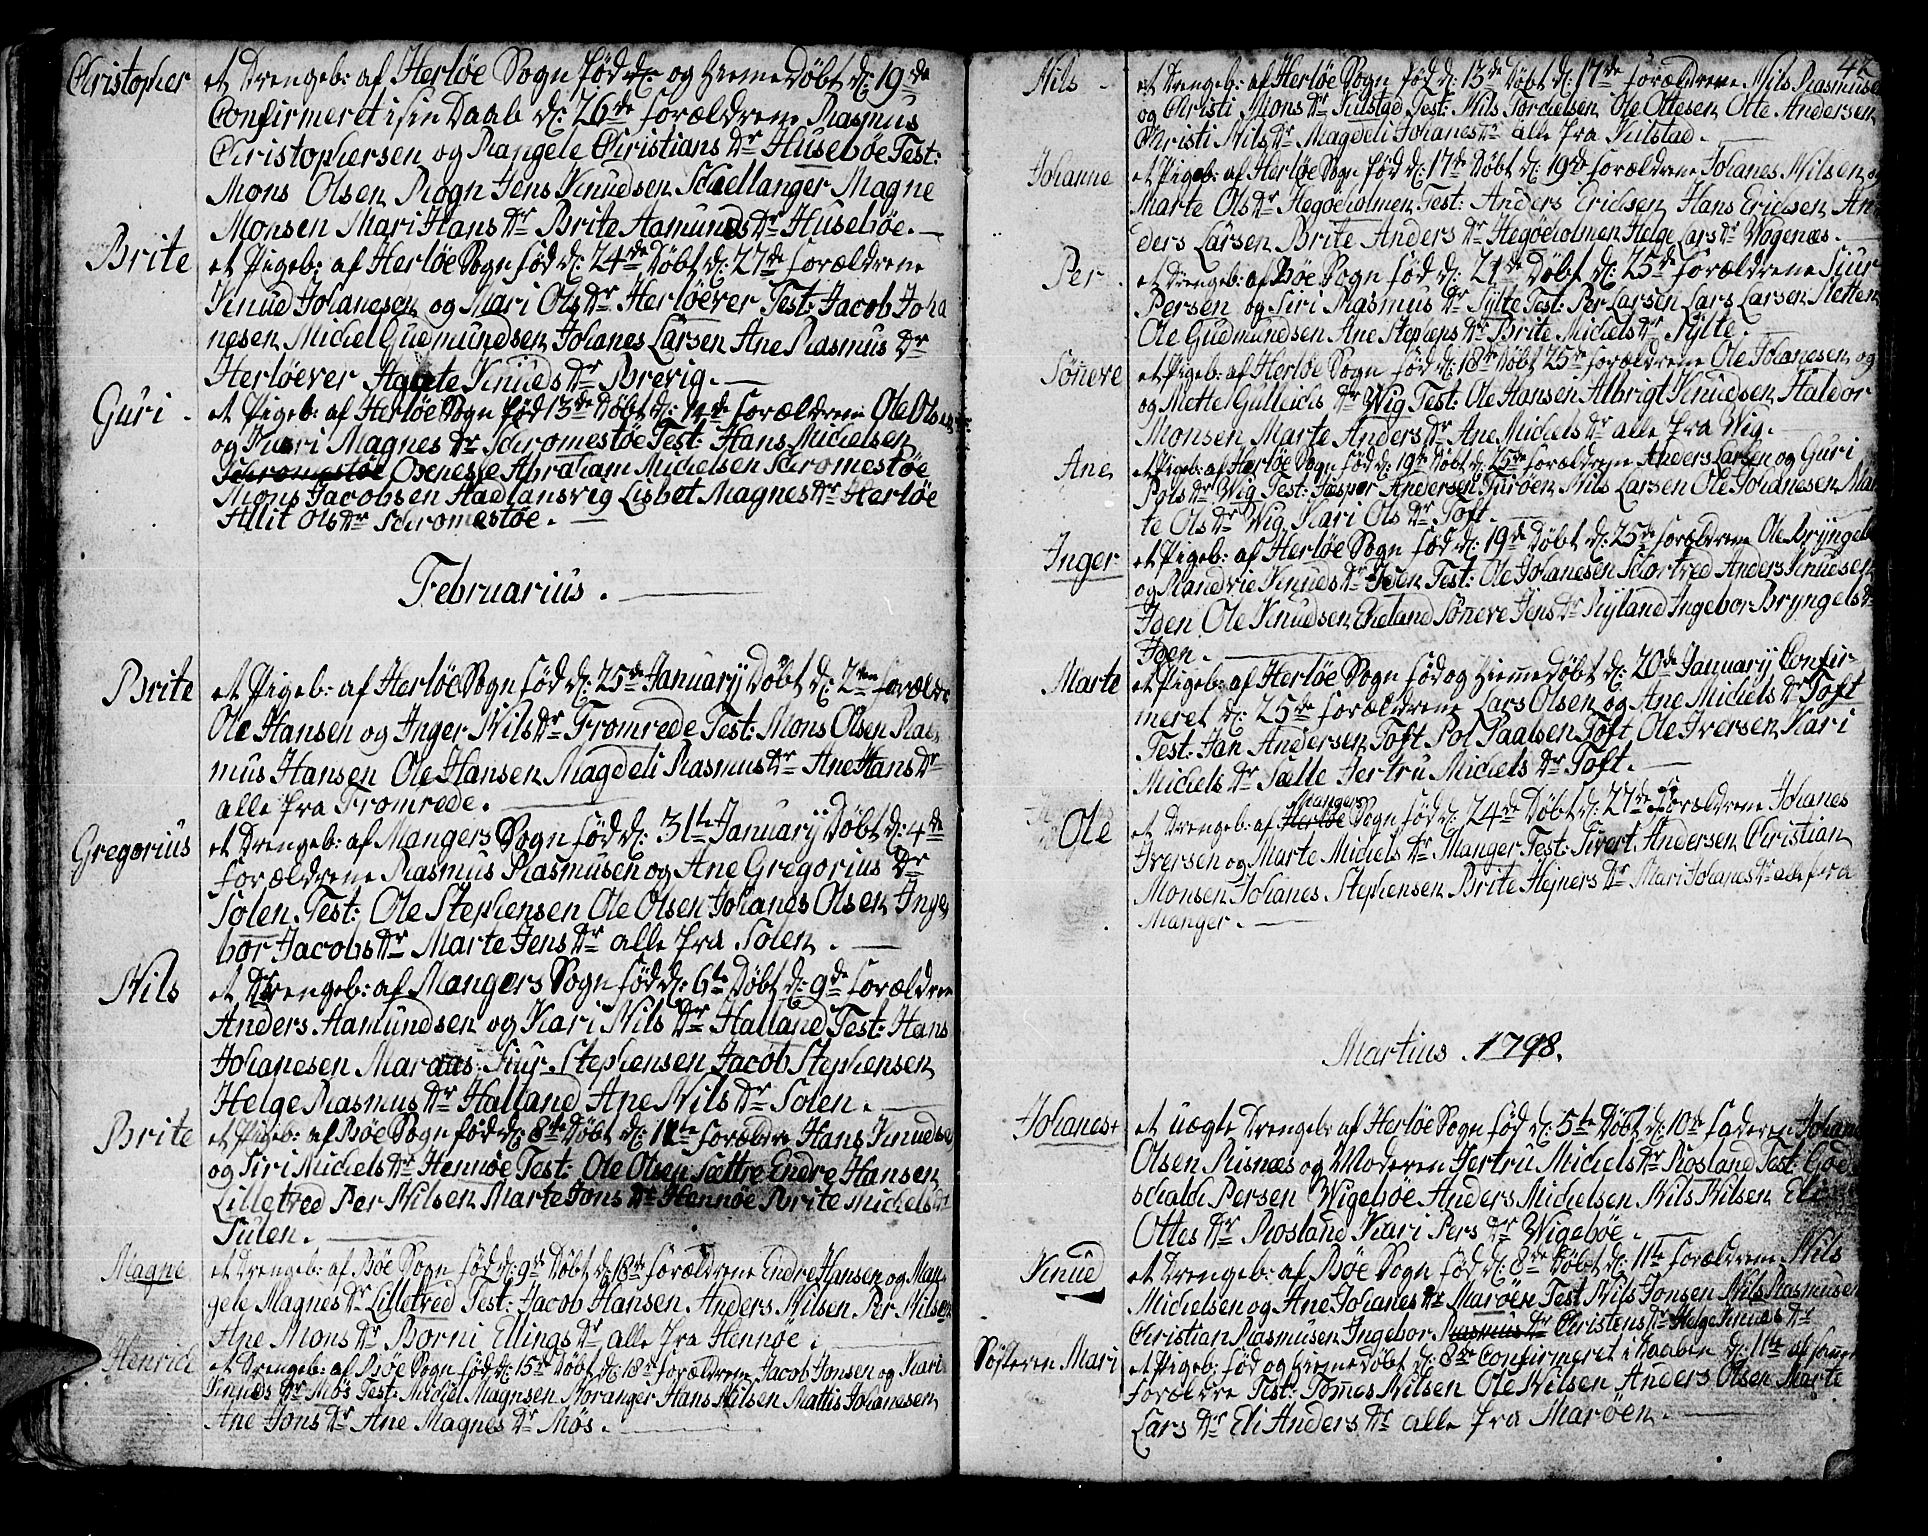 Christopher et Drengeb: af Herløe Sogn fød d: og hiemedøbt d: 19de
Confirmeret i sin Daab d: 26de Forældrene Rasmus
Christophersen og Rangele Christians Dr Husebøe Test:
Mons Olsen Rogn Jens Knudsen Schellanger Magne
Monsen Mari Hans Dr Brite Aamunds Dr Husebøe.
Brite et Pigeb: af Herløe Sogn fød d: 24de Døbt d: 27de Forældrene
Knud Johanesen og Mari Ols Dr Herløever Test: Jacob Joha
nesen Michel Gudmundsen Johanes Larsen Ane Rasmus Dr
Herløever Agate Knuds Dr Brevig.
Guri. et Pigeb: af Herløe Sogn fød 13de Døbt d: 14de Forældrene Ole Olsen
og Kari Magnes Dr Schromestøe Test: Hans Michelsen
Schromestøe Oxnesse Abraham Michelsen Schromestøe
Mons Jacobsen Hadlansvig Lisbet Magnes Dr Herløe
Allit Ols Dr Schromestøe.
Februarius.
Brite et Pigeb: af Herløe Sogn fød d: 25de January Døbt d: 2den Forældre
Ole Hansen og Inger Nils Dr Fromrede Test: Mons Olsen Ras
mus Hansen Ole Hansen Magdeli Rasmus Dr Ane Hans Dr
alle fra Fromrede.
Gregorius et Drengeb: af Mangers Sogn fød d: 31te January Døbt d: 4de
Forældrene Rasmus Rasmusen og Ane Gregorius Dr
Solen Test: Ole Stephensen Ole Olsen Johanes Olsen Inge
bor Jacobs Dr Marte Jens Dr alle fra Solen.
Nils et Drengeb: af Mangers Sogn fød d: 6te Døbt d: 9de Forældrene
Anders Aamundsen og Kari Nils Dr Halland Test: Hans
Johanesen Maraas Siur Stephensen Jacob Stephensen
Helge Rasmus Dr Halland Ane Nils Dr Solen.
Brite et Pigeb: af Bøe Sogn fød d: 8de Døbt d: 11te Forældre Hans Knudse
og Siri Michels Dr Hennøe Test: Ole Olsen Sættre Endre Hansen
Lilletred Per Nilsen Marte Jons Dr Hennøe Brite Michels Dr
Sulen.
Magne et Drengeb: af Bøe Sogn fød d: 9de Døbt d: 18de Forældrene Endre Hansen og Man
gele Magnes Dr Lilletred Test: Jacob Hansen Anders Nilsen Per Nilsen
Ane Mons Dr Borni Ellings Dr alle fra Hennøe.
Henrich et Drengeb: af Bøe Sogn fød d: 15de Døbt d: 18de Forældrene Jacob Jonsen og Kari
Knuds Dr Møs Test: Michel Magnsen Noranger Hans Nilsen Mattis Johanesen
Ane Jons Dr Ane Magnes Dr Møs.
42
Nils. et Drengeb: af Herløe Sogn fød d: 13de Døbt d: 17de Forældrene Nils Rasmusen
og Christi Mons Dr Kulstad Test: Nils Tordelsen Ole Ottesen Otte Andersen
Christi Nils Dr Magdeli Johanes Dr alle fra Kulstad.
Johanne et Pigeb: af Herløe Sogn fød d: 17de Døbt d: 19de Forældrene Johanes Nilsen og
Marte Ols Dr Hegøeholmen Test: Anders Erichsen Hans Erichsen An
ders Larsen Brite Anders Dr Hegøeholmen Helge Lars Dr Vogenæs.
Per. et Drengeb: af Bøe Sogn fød d: 21de Døbt d: 25de Forældrene Siur
Persen og Siri Rasmus Dr Sylte Test: Per Larsen Lars Larsen Sletten
Ole Gudmundsen Ane Stephens Dr Brite Michels Dr Sylte.
Søneve et Pigeb: af Herløe Sogn fød d: 18de Døbt 25de Forældrene Ole Johanesen og
og Mettel Gulleichs Dr Wig Test: Ole Hansen Albrigt Knudsen Haldor
Monsen Marte Anders Dr Ane Michels Dr alle fra Wig.
Ane et Pigeb: af Herløe Sogn fød d: 19de Døbt d: 25de Forældrene Anders Larsen og Guri
Pols Dr Wig Test: Jasper Andersen Turøen Nils Larsen Ole Johanesen Mar
te Ols Dr Wig Kari Ols Dr Toft.
Inger et Pigeb: af Herløe Sogn fød d: 19de Døbt d: 25de Forældrene Ole Bryngels
og Randvie Knuds Dr Iden Test: Ole Johanesen Schortred Anders Knudsen
Iden Ole Knudsen Eheland Søneve Jens Dr Ryland Ingebor Bryngels Dr
Iden.
Marte et Pigeb: af Herløe Sogn fød og hiemedøbt d: 20de January Confir-
meret d: 25de Forældrene Lars Olsen og Ane Michels Dr Toft
Test: Jan Andersen Toft Pol Paalsen Toft Ole Iversen Kari
Michels Dr Sælle Jertru Michels Dr Toft.
Ole et Drengeb: af Herløe Mangers Sogn fød d: 24de Døbt d: 27de Forældrene Johanes
Iversen og Marte Michels Dr Manger Test: Sivert Andersen Christian
Monsen Johanes Stephensen Brite Hejners Dr Mari Johanes Dr alle fra
Manger.
Martius 1798.
Johanes+ et uægte Drengeb: af Herløe Sogn fød d: 5te Døbt d: 10de Faderen Johan
Olsen Risnæs og Moderen Jertru Michels Dr Rosland Test: God
schalch Persen Wigebøe Anders Michelsen Nils Nilsen Eli
Ottes Dr Rosland Kari Pers Dr Wigebøe.
Knud et Drengeb: af Bøe Sogn fød d: 8de Døbt d: 11te Forældrene Nils
Michelsen og Ane Johanes Dr Marøen Test Nils Jonsen Nils Rasmusen
Christian Rasmusen Ingebor Rasmus Dr Christens Dr Helge Knuds Dr
Søsteren Mari et Pigeb: fød og hiemedøbt d: 8de Confirmeret i Daaben d: 11te af samme
Forældre Test: Tomes Nilsen Ole Nilsen Anders Olsen Marte
Lars Dr Eli Anders Dr alle fra Marøen.